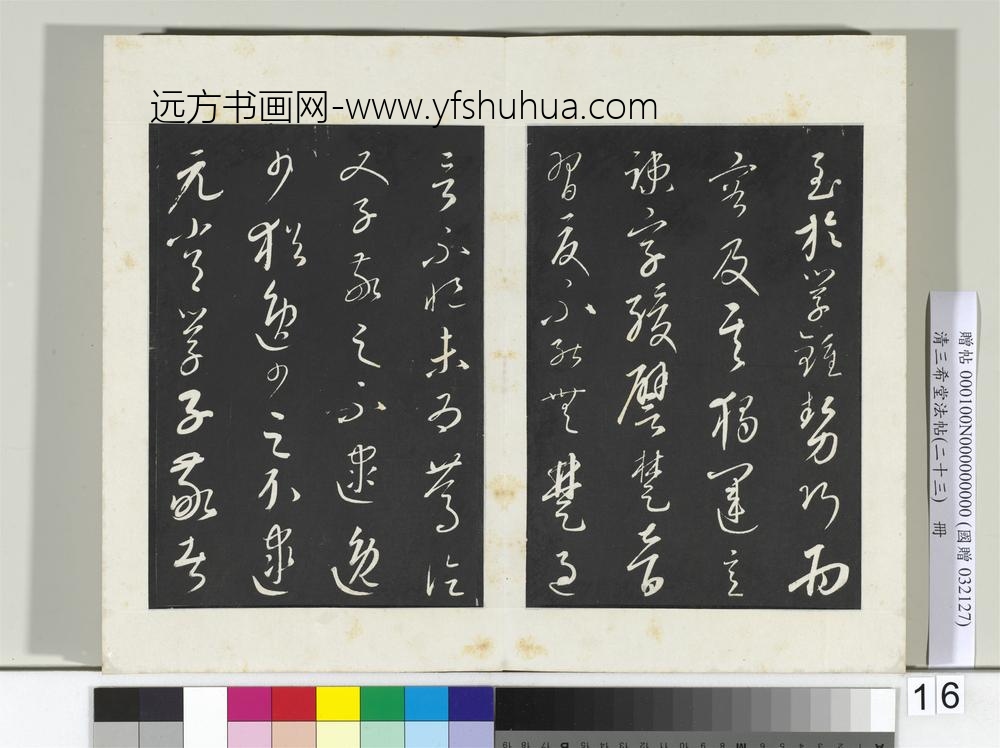 远方书画网-www.yfshuhua.com
至於學鍾勢巧形
密及其獨運意
疎字緩譬楚音
習夏不能無楚過
言不悒未為篤論
又子敬之不逮逸
少猶逸少之不逮
元常學子敬者
贈帖 000100N000000000 (國贈 032127)
清三希堂法帖(二十三) 冊
16